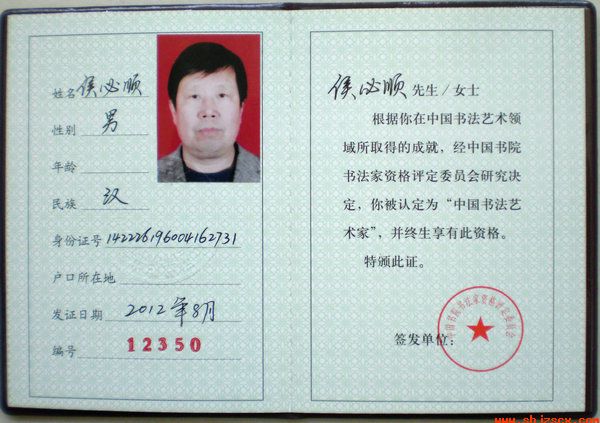 姓名 侯必顺
性别 男
年龄
民族 汉
身份证号 142226196004162731
户口所在地
发证日期 2012年8月
编号 12350
侯必顺 先生/女士
根据你在中国书法艺术领
域所取得的成就，经中国书院
书法家资格评定委员会研究决
定，你被认定为“中国书法艺
术家”，并终生享有此资格。
特颁此证。
签发单位：
中国书院书法家资格评定委员会